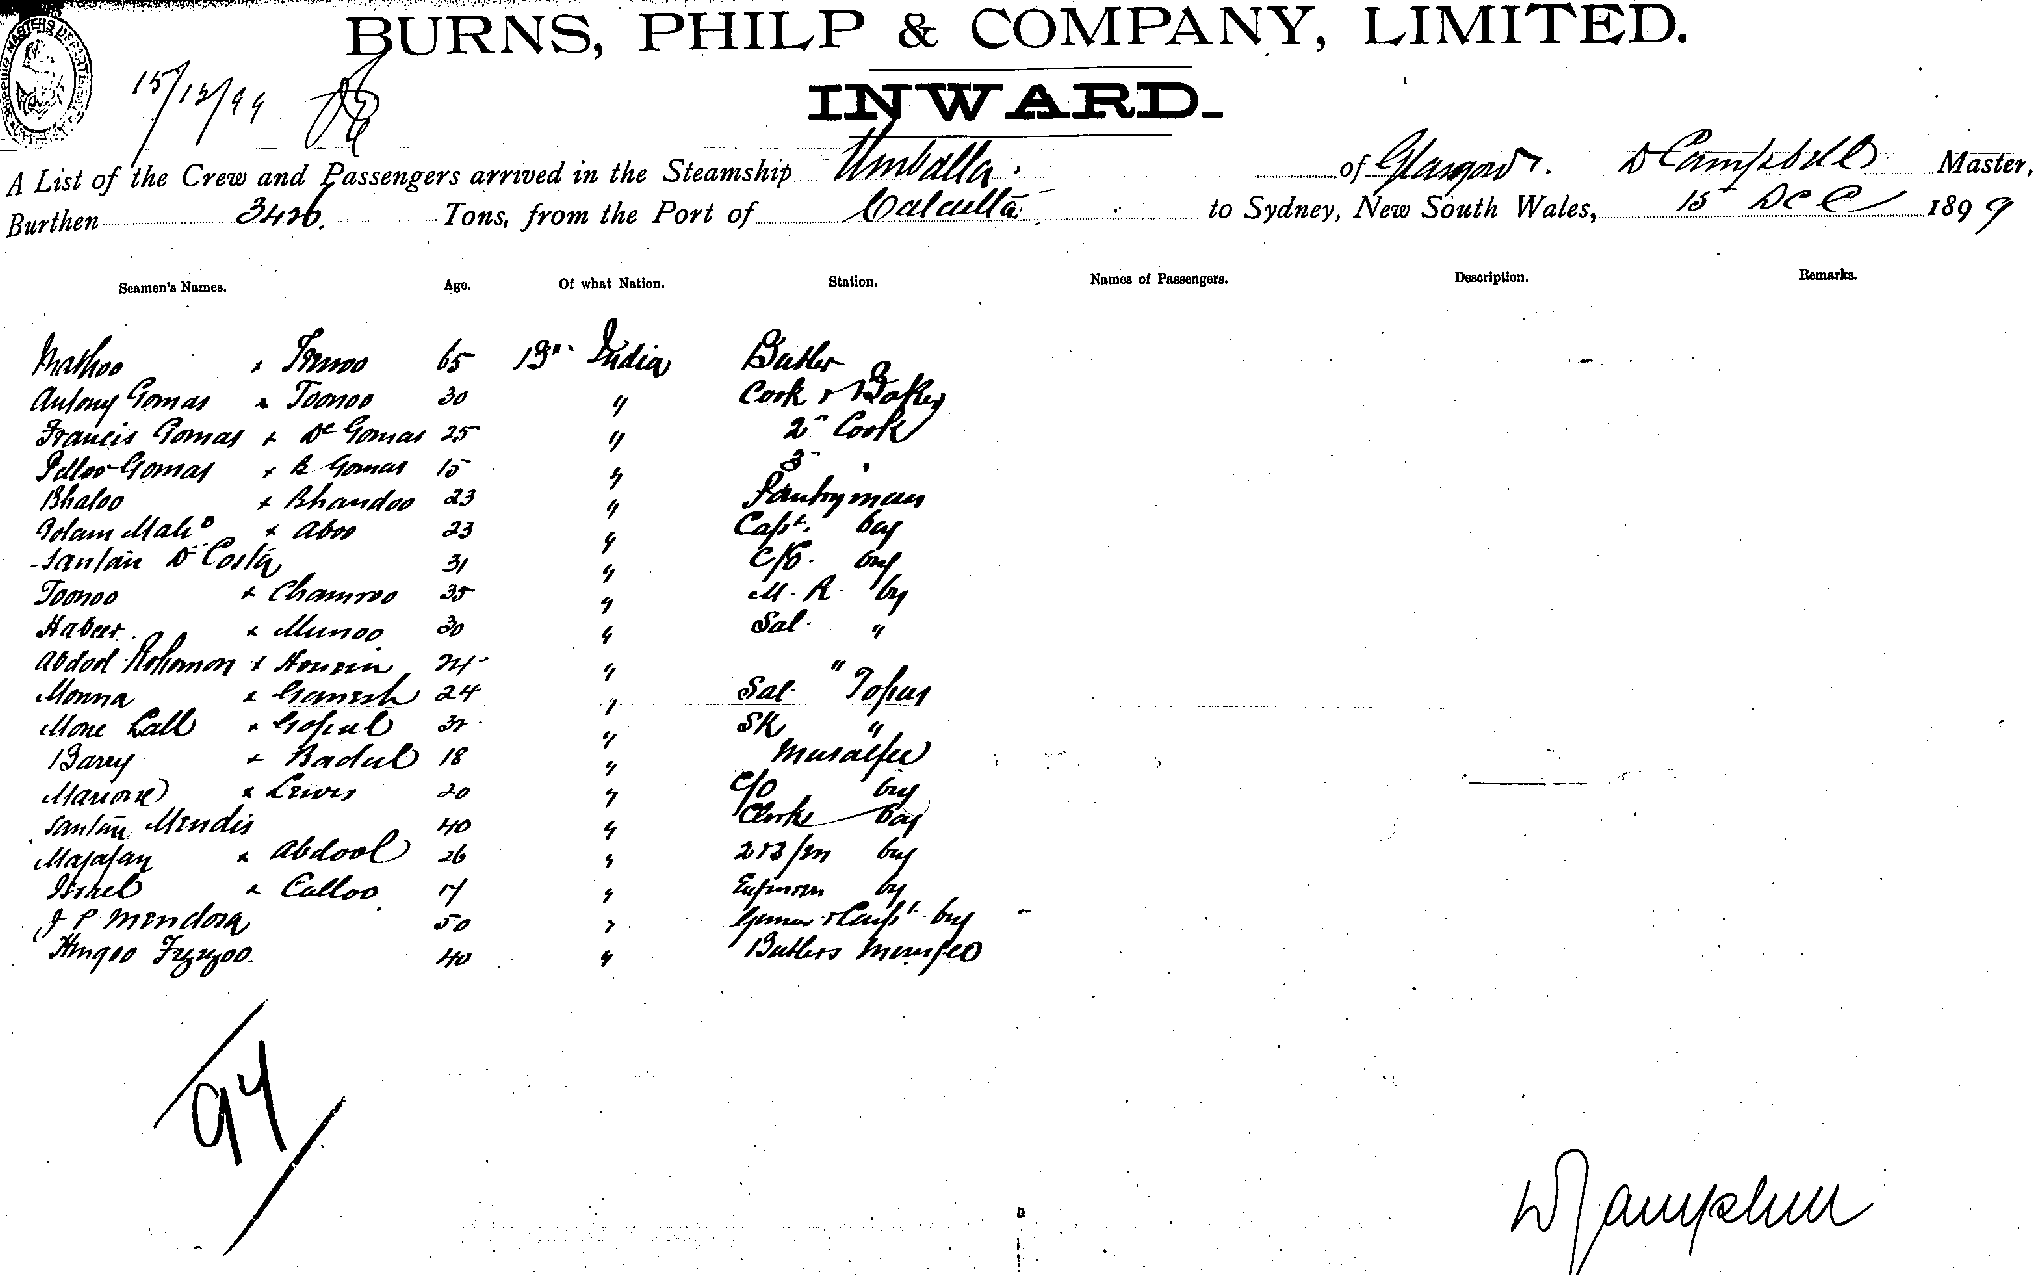 BURNS, PHILP & COMPANY, LIMITED.
15/12/99
INWARD.
A List of the Crew and Passengers arrived in the Steamship Umballa. of Glasgow. D Campbell Master,
Burthen 3426. Tons, from the Port of Calcutta to Sydney, New South Wales, 15 Dec 1899
Seamen's Names. Age. Of what Nation. Station. Names of Passengers. Description. Remarks.
65 Bn India Butler
Antony Gomas x Toonoo 30 " Cook & Baker
Francis Gomas x De Gomas 25 " 2n Cook
Gomas x R Gomas 15 " 3
Bhaloo x Bhandoo 23 " Pantryman
Golam x Aboo 23 " Capt. boy
Santan D Costa 31 " boy
Toonoo x Chamroo 35 " M. R. by
x Munoo 30 " Sal. "
Abdool Rohomon x Hossein 24 " "
Monna x Ganesh 24 " Sal. Topas
Mone Lall x Gopal " SK "
x Badul 18 "
x Lewis 20 " c/o boy
Santan Mendis 40 " Clerks boy
x Abdool 26 " boy
Israel x Calloo 17 " by
J P Mendoza 50 " boy
40 " Butlers
94
D Campbell